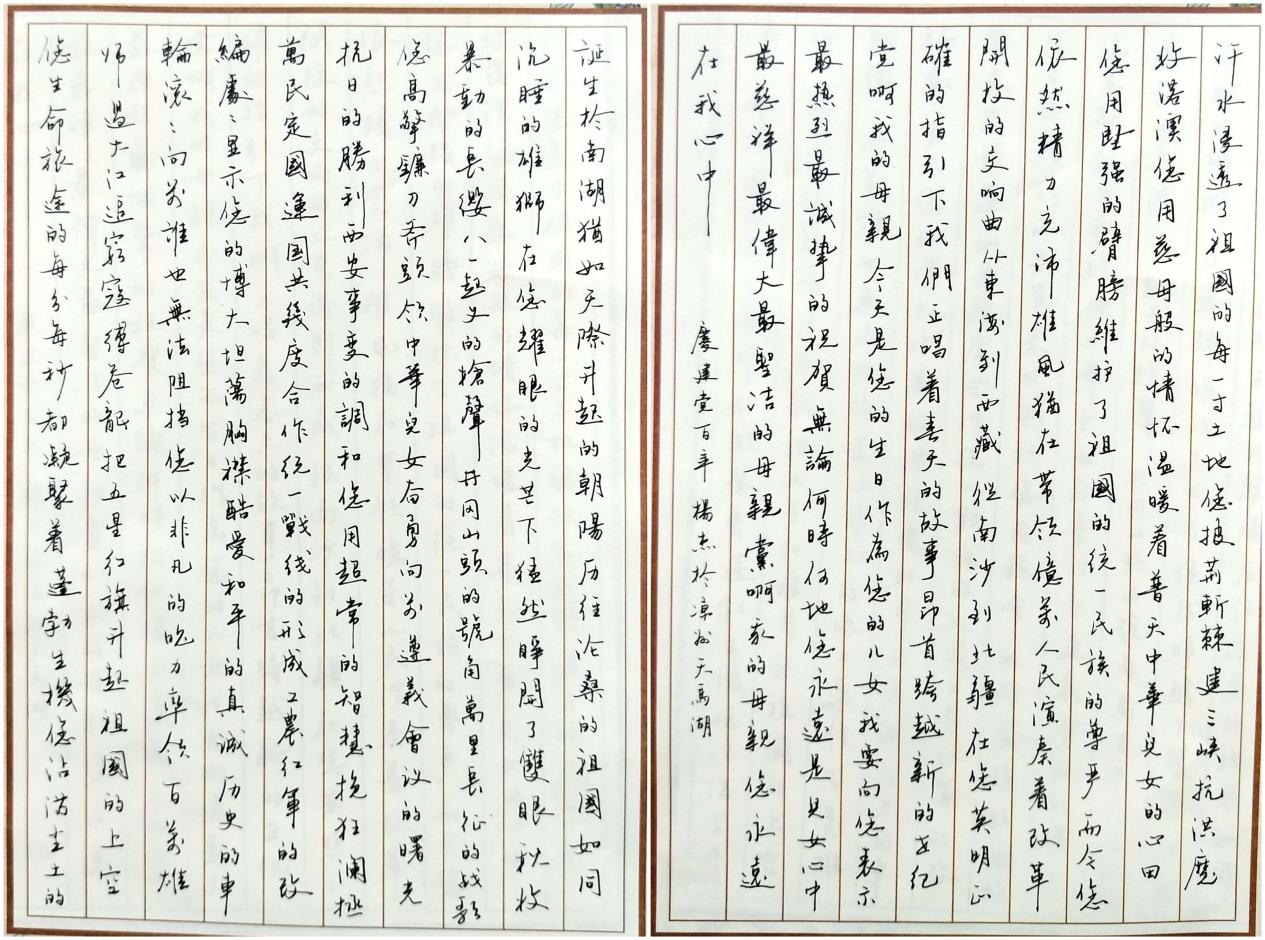 誕生於南湖猶如天際升起的朝陽历经沧桑的祖國如同
沉睡的雄獅在您耀眼的光芒下猛然睜開了雙眼秋收
暴動的長纓八一起义的槍聲井冈山頭的號角萬里長征的战歌
您高擎鐮刀斧頭领中華兒女奋勇向前遵義會议的曙光
抗日的勝利西安事变的調和您用超常的智慧挽狂澜拯
萬民定國運国共幾度合作统一戰线的形成工農红軍的改
編處々显示您的博大坦蕩胸襟酷愛和平的真诚历史的車
輪滚々向前誰也無法阻挡您以非凡的魄力率领百萬雄
师過大江追窮寇缚苍龍把五星红旗升起祖國的上空
您生命旅途的每分每秒都凝聚着蓬勃生機您沾满尘土的
汗水浸透了祖國的每一寸土地您披荆斬棘建三峡抗洪魔
收港澳您用慈母般的情怀温暖着普天中華兒女的心田
您用坚强的臂膀維护了祖國的统一民族的尊严而今您
依然精力充沛雄風猶在带领億萬人民演奏着改革
開放的交响曲从東海到西藏從南沙到北疆在您英明正
確的指引下我們正唱着春天的故事昂首跨越新的世纪
党啊我的母親今天是您的生日作為您的儿女我要向您表示
最热烈最誠挚的祝賀無論何時何地您永遠是兒女心中
最慈祥最偉大最聖洁的母親黨啊我的母親您永遠
在我心中
慶建党百年楊杰於凉州天馬湖